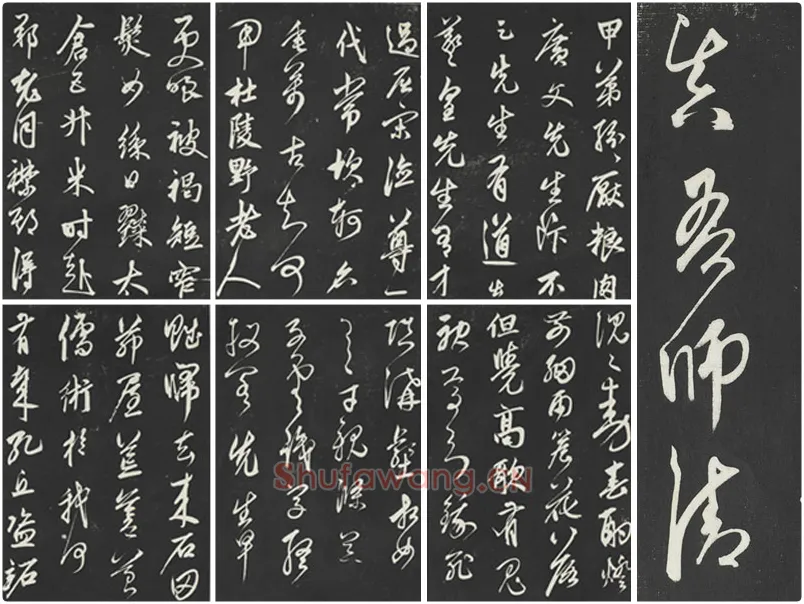 甲第紛紛厭粮肉
廣文先生飰不
足先生有道出
羲皇先生有才
過屈宋德尊一
代常坎軻名
垂萬古知何
用杜陵野老人
更嗤被褐短窄
鬢如絲日糴太
倉五升米時赴
鄭老同襟期得
真吾師清
夜沉沉動春酌燈
前細雨簷花落
但覺高歌有鬼
神焉知餓死
填溝壑相如
逸才親滌器
子雲識字終
投閣先生早
賦歸去來石田
茅屋荒蒼苔
儒術於我何
有哉孔丘盜跖
Shufawang.CN